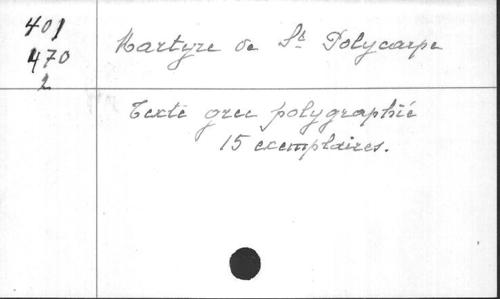 401
470
2
Martyre de St Polycarpe
Texte grec polygraphié
15 exemplaires.